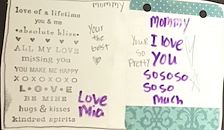 love of a lifetime
you & me
absolute bliss
ALL MY LOVE
missing you
YOU MAKE ME HAPPY
XOXOXOXO
L•O•V•E
BE MINE
hugs & kisses
kindred spirits
mommy
Your
the
best
Love
Mia
Mommy
I love
You
sososo
soso
much
You
So
Pretty